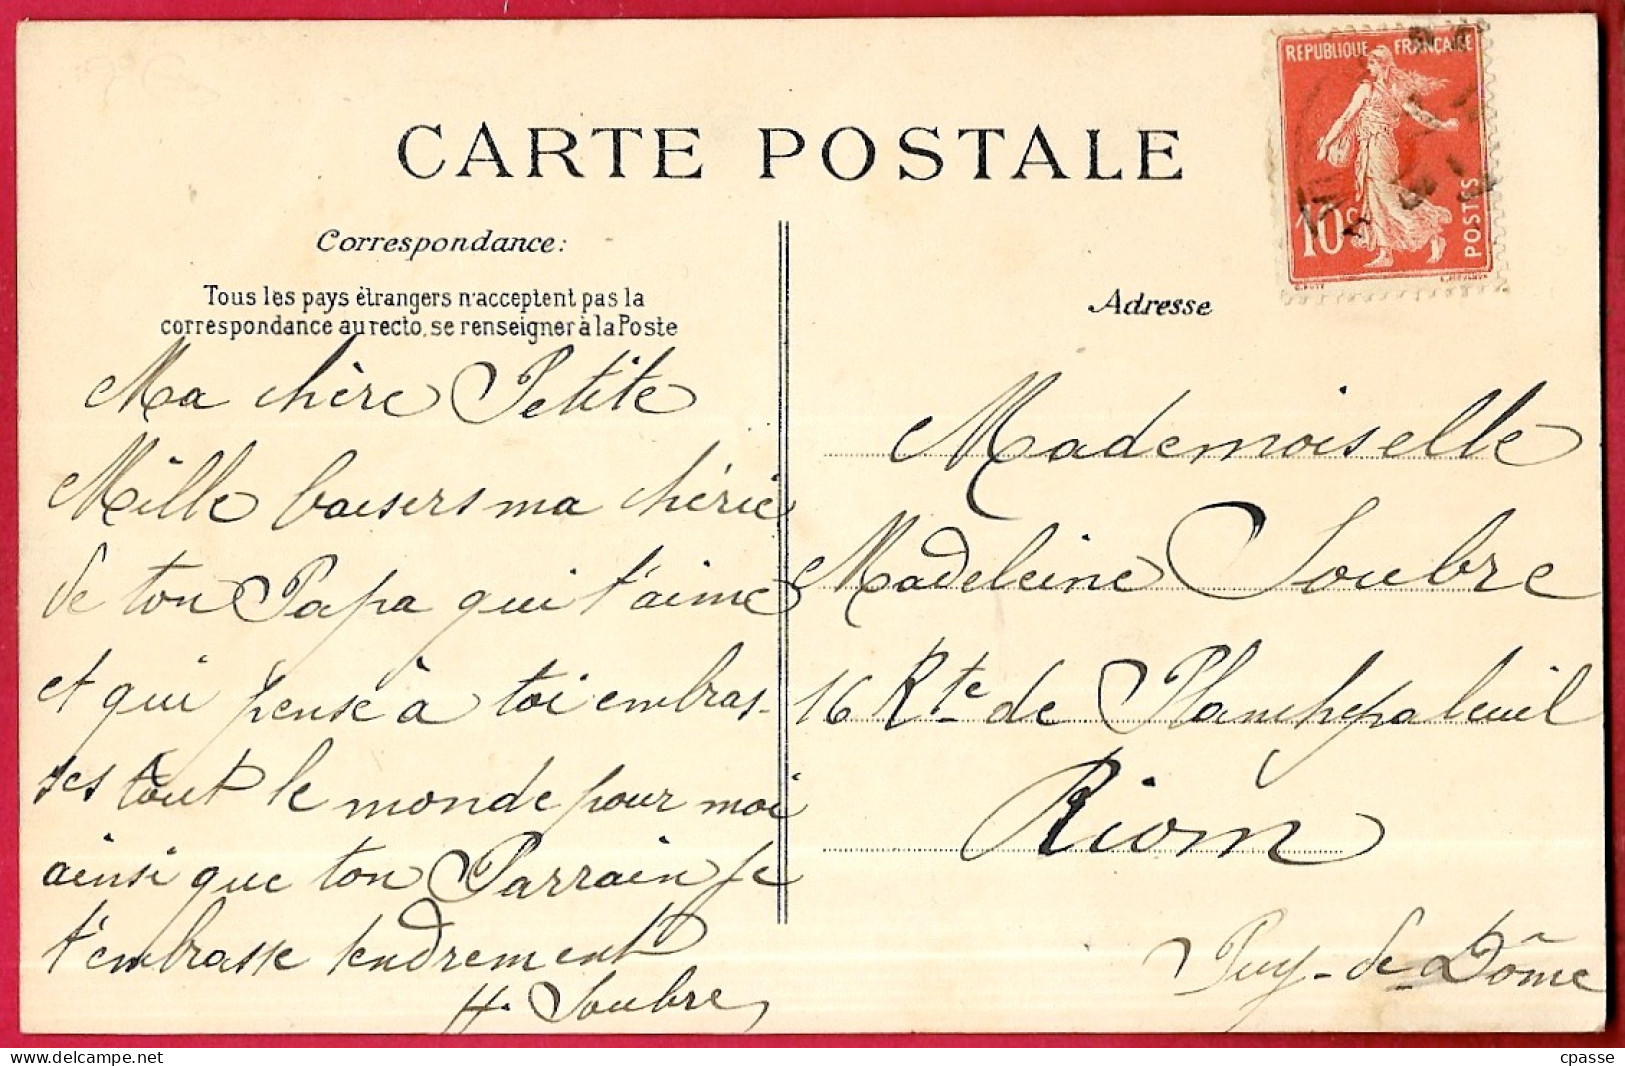 CARTE POSTALE
REPUBLIQUE FRANÇAISE
10c
POSTES
Correspondance:
Tous les pays étrangers n'acceptent pas la
correspondance au recto, se renseigner à la Poste
Adresse
Ma chère Petite
Mille baisers ma chérie
de ton Papa qui t'aime
et qui pense à toi embras-
ses tout le monde pour moi
ainsi que ton Parrain je
t'embrasse tendrement
H. Soubre
Mademoiselle
Madeleine Soubre
16 Rte de Planchepaleuil
Riom
Puy-de-Dôme
cpasse